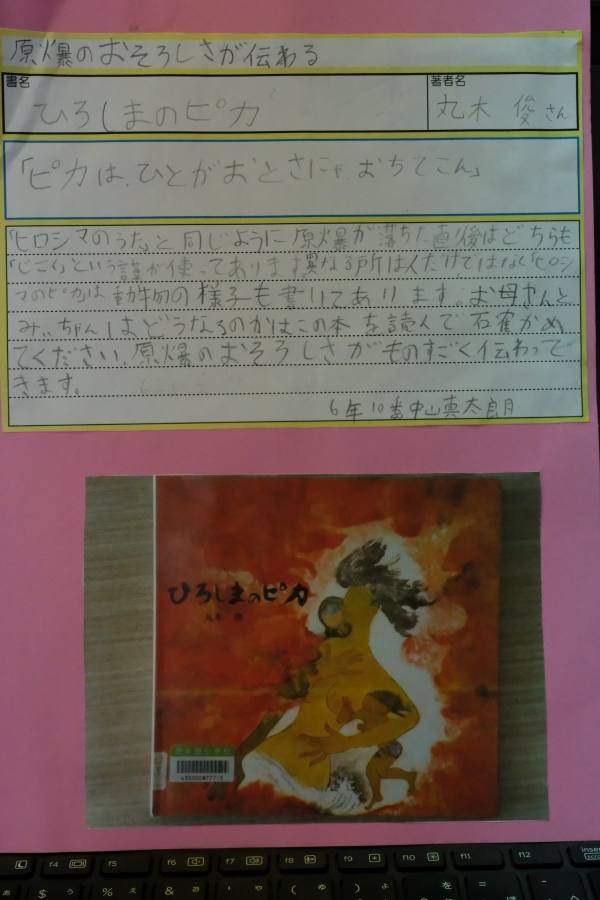 原爆のおそろしさが伝わる
書名
著者名
ひろしまのピカ
丸木 俊さん
「ピカは、ひとがおとさにゃ、おちてこん」
「ヒロシマのうた」と同じように原爆が落ちた直後はどちらも
「じごく」という語が使ってあります異なる所は人だけではない「ヒロシ
マのピカ」は動物の様子も書いてあります。お母さんと
みいちゃんはどうなるのかはこの本を読んで石雀かめ
てください。原爆のおそろしさがものすごく伝わって
きます。
6年10番中山真太郎
ひろしまのピカ
丸木 俊
f4
f5
f6
f7
f8
f9
f10
f11
f12
insert
$
う
%
え
&
お
や
ゆ
よ
を
=